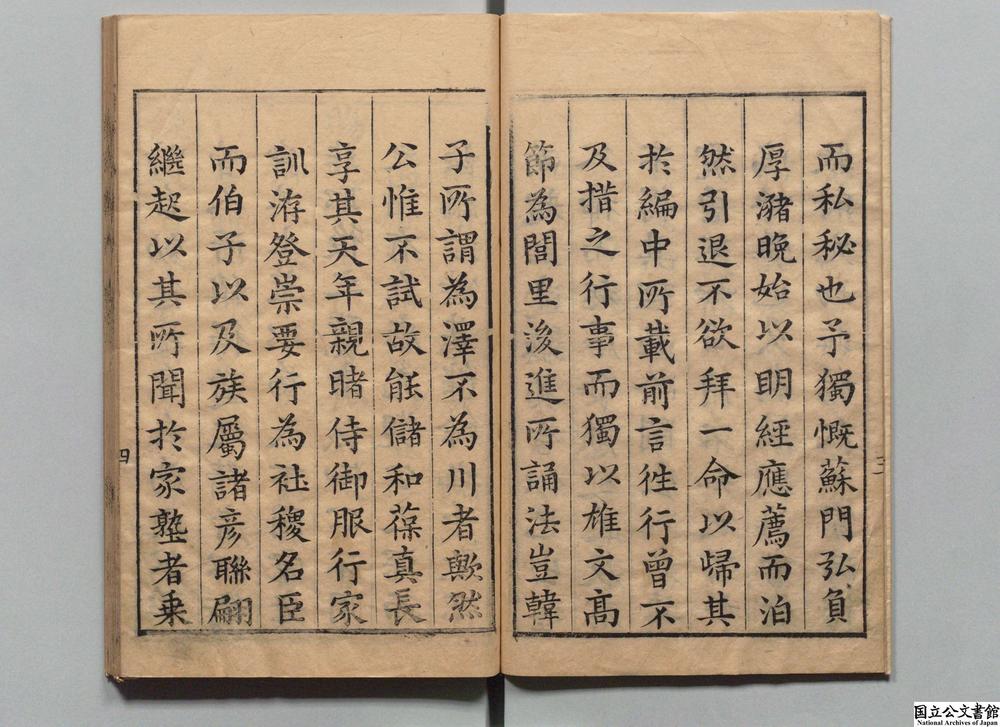 而私秘也予獨慨蘇門弘負
厚瀦晚始以明經應薦而泊
然引退不欲拜一命以歸其
扵編中所載前言徃行曾不
及措之行事而獨以雄文髙
節為閭里後進所誦法豈韓
三
子所謂為澤不為川者歟然
公惟不試故能儲和葆真長
享其天年親睹侍御服行家
訓洊登崇要行為社稷名臣
而伯子以及族屬諸彦聯翩
繼起以其所聞扵家塾者乗
四
国立公文書館
National Archives of Japan